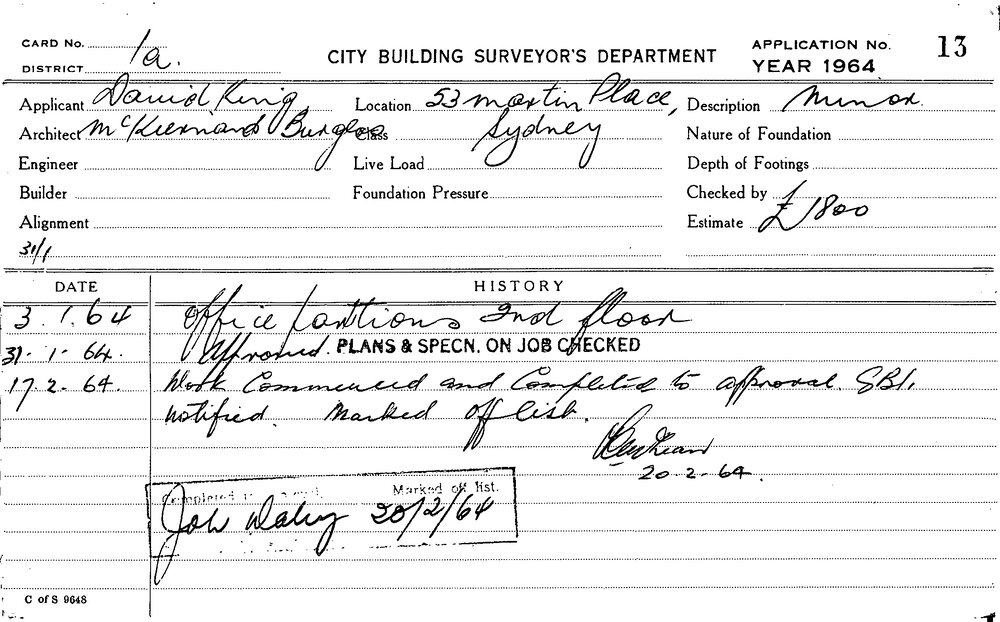 CARD No. 1a.
CITY BUILDING SURVEYOR'S DEPARTMENT
APPLICATION No. 13
DISTRICT
YEAR 1964
Applicant David King Location 53 Martin Place, Description Minor.
Architect McKiernan Burgless Class Sydney Nature of Foundation
Engineer Live Load Depth of Footings
Builder Foundation Pressure Checked by
Alignment Estimate £1800
31/1
DATE HISTORY
3. 1. 64 Office Partitions 2nd floor
31. 1. 64. Approved. PLANS & SPECN. ON JOB CHECKED
17. 2. 64. Work Commenced and Completed to approval. SBI.
notified. Marked off list.
20-2-64.
Completed Marked off list.
20/2/64
C of S 9648